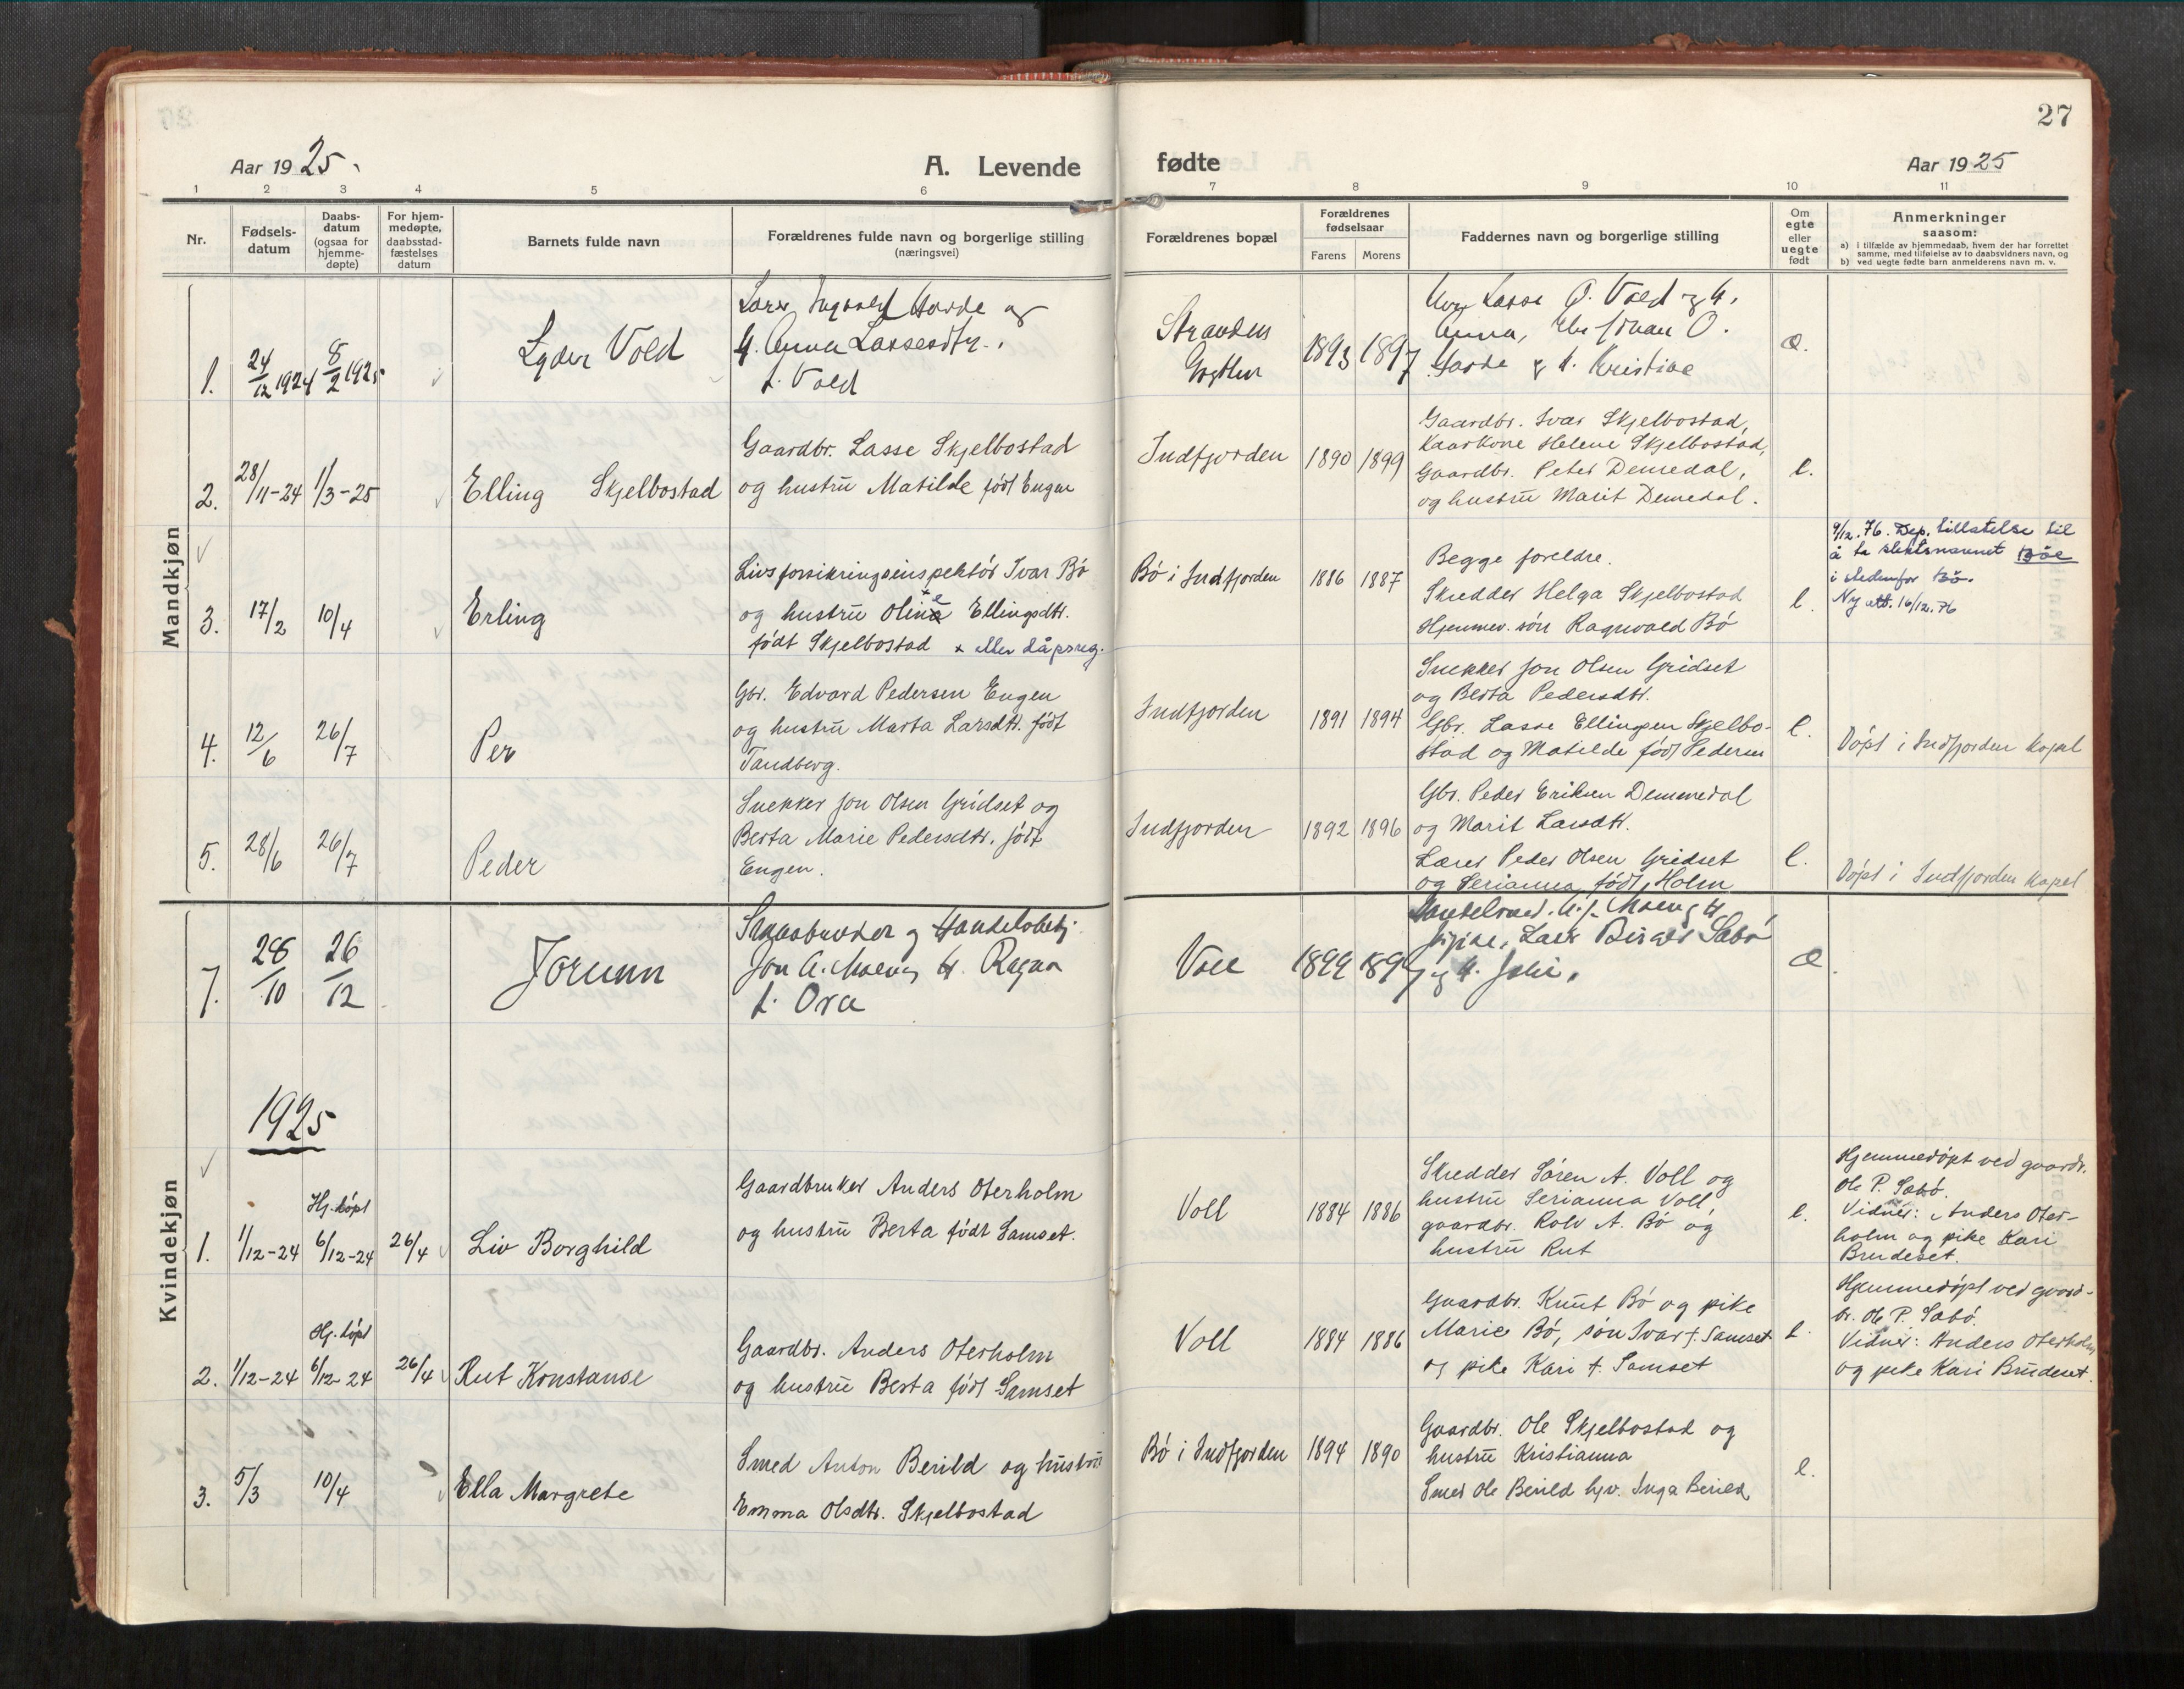 27
Aar 1925.
A. Levende fødte
Aar 1925
1 2 3 4 5 6 7 8 9 10 11
Nr.
Fødsels-
datum
Daabs-
datum
(ogsaa for
hjemme-
døpte)
For hjem-
medøpte,
daabsstad-
fæstelses
datum
Barnets fulde navn
Forældrenes fulde navn og borgerlige stilling
(næringsvei)
Forældrenes bopæl
Forældrenes
fødselsaar
Farens Morens
Faddernes navn og borgerlige stilling
Om
egte
eller
uegte
født
Anmerkninger
saasom:
a) i tilfælde av hjemmedaab, hvem der har forrettet
samme, med tilføielse av to daabsvidners navn, og
b) ved uegte fødte barn anmelderens navn m. v.
Mandkjøn
1.
24/12 1924
8/2 1925
Lyder Vold
og
H. Anna Lassesdtr.
f. Vold
Stranden
1893 1897
Lasse O. Vold og H.
Anna, Johan O.
& H. Kristine
e.
2.
28/11-24
1/3-25
Elling Skjelbostad
Gaardbr. Lasse Skjelbostad
og hustru Matilde født Engen
Indfjorden
1890 1899
Gaardbr. Ivar Skjelbostad,
Kaarkone Helene Skjelbostad,
Gaardbr. Peter Demedal,
og hustru Marit Demedal.
e.
3.
17/2
10/4
Erling
Livsforsikringsinspektör Ivar Bö
og hustru Oline Ellingsdtr.
född Skjelbostad x eller dåpsreg.
Bö i Indfjorden
1886 1887
Begge foreldre.
Skredder Helga Skjelbostad
Hjemmev. sön Ragnvald Bö
e.
9/12.76. Dep. tillatelse til
å ta slektsnavnet Böe
i stedenfor Bö.
Ny att. 16/12.76
4.
12/6
26/7
Per
Gbr. Edvard Pedersen Engen
og hustru Marta Larsdtr. födt
Tandberg.
Indfjorden
1891 1894
Snekker Jon Olsen Gridset
og Berta Pedersdtr.
Gbr. Lasse Ellingsen Skjelbo-
stad og Matilde född Pedersen
e.
Döpt i Indfjorden kapel
5.
28/6
26/7
Peder
Snekker Jon Olsen Gridset og
Berta Marie Pedersdtr. födt
Engen.
Indfjorden
1892 1896
Gbr. Peder Eriksen Demmedal
og Marit Larsdtr.
Lærer Peder Olsen Gridset
og Serianna född Holm
e.
Döpt i Indfjorden kapel
Kvindekjøn
7.
28/10
26/12
Jorunn
og Handelsbetj.
Jon A. H. Ragna
f. Ora
Voll
1899 189
Lars Birger Sæbö
og H.
e.
1925
1.
1/12-24
Hj. döpt
6/12-24
26/4
Liv Borghild
Gaardbruker Anders Oterholm
og hustru Berta födt Samset.
Voll
1884 1886
Skredder Sören A. Voll og
hustru Serianna Voll,
gaardbr. Rolv A. Bö og
hustru Rut
e.
Hjemmedöpt ved gaardbr.
Ole P. Sæbö.
Vidner: Anders Oter-
holm og pike Kari
Brudeset.
2.
1/12-24
Hj. döpt
6/12-24
26/4
Rut Konstanse
Gaardbr. Anders Oterholm
og hustru Berta född Samset
Voll
1884 1886
Gaardbr. Knut Bö og pike
Marie Bö, sön Ivar f. Samset
og pike Kari f. Samset
e.
Hjemmedöpt ved gaard-
br. Ole P. Sæbö.
Vidner: Anders Oterholm
og pike Kari Brudeset.
3.
5/3
10/4
Ella Margrete
Smed Anton Berild og hustru
Emma Olsdtr. Skjelbostad
Bö i Indfjorden
1894 1890
Gaardbr. Ole Skjelbostad og
hustru Kristianna
Smed Ole Berild hjv. Inga Berild
e.